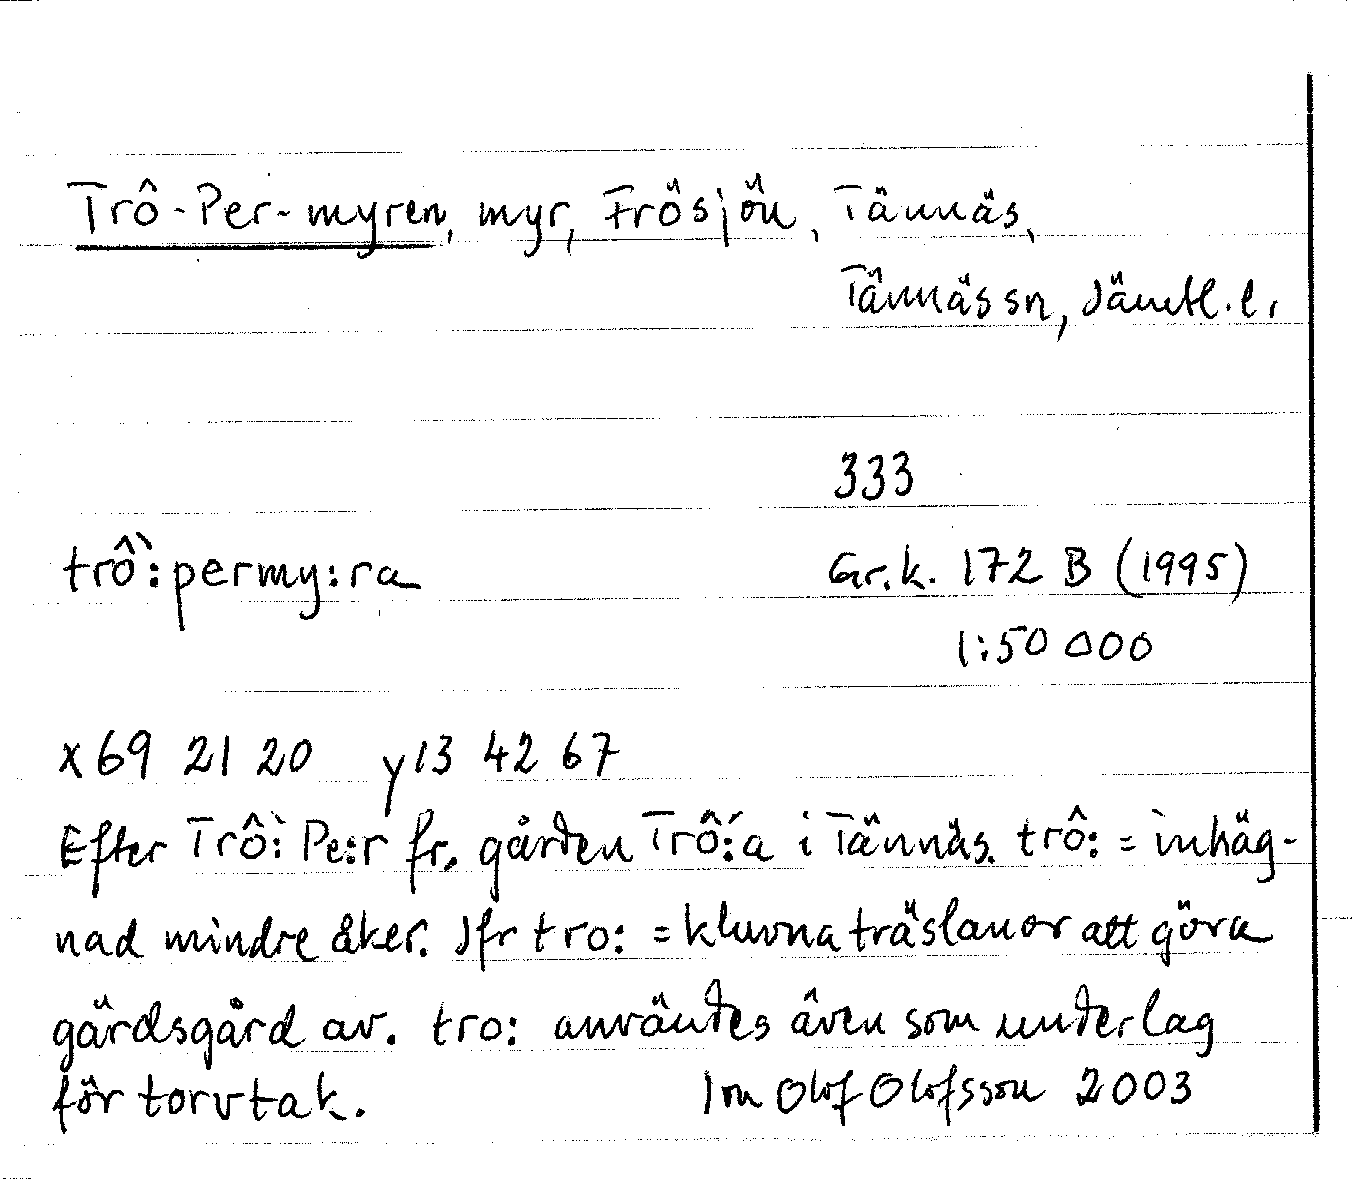 Trô-Per-myren, myr, Frösjön, Tännäs,
Tännäs sn, Jämtl. l.
333
trô`:permy:ra
Gr.k. 172 B (1995)
1:50 000
x 69 21 20 y 13 42 67
Efter Trô`: Pe:r fr. gården Trô´:a i Tännäs. trô: = inhäg-
nad mindre åker. Jfr tro: = kluvna träslanor att göra
gärdsgård av. tro: användes även som underlag
för torvtak. Jon Olof Olofsson 2003